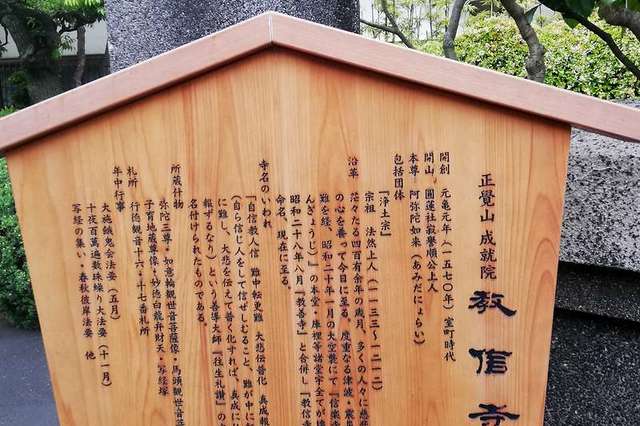 正覺山 成就院 教信寺
開創 元亀元年(一五七〇年)室町時代
開山 圓蓮社寂譽順公上人
本尊 阿弥陀如来(あみだにょらい)
包括団体
『浄土宗』
宗祖 法然上人(一一三三〜一二一二)
沿革 茫々たる四百有余年の歳月、多くの人々に慈悲
の心を養って今日に至る。度重なる津波・震災
難を経、昭和二十年一月の大空襲にて『信楽
んぎょうじ)』の本堂・庫裡等諸堂宇全てが
昭和二十八年八月『教善寺』と合併し『教信寺
命名、現在に至る。
寺名のいわれ
『自信教人信 難中転更難 大悲伝普化 真成報
(自ら信じ人をして信ぜしむること、難が中に
に難し、大悲を伝えて普く化すれば、真成に
報ずるなり)という善導大師『往生礼讃』の
名付けられたものである。
所蔵什物
弥陀三尊・如意輪観世音菩薩像・馬頭観世音菩
子育地蔵尊像・妙徳白龍弁財天・写経塚
札所 行徳観音十六・十七番札所
年中行事
大施餓鬼会法要(五月)
十夜百萬遍数珠繰り大法要(十一月)
写経の集い・春秋彼岸法要 他